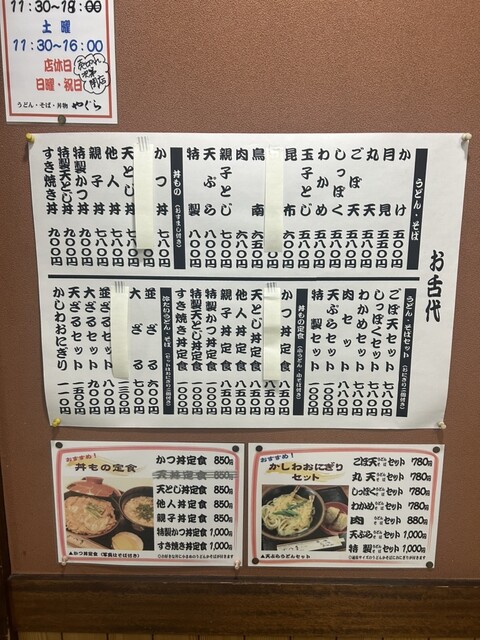 11:30~18:00
土 曜
11:30~16:00
店休日
日曜・祝日
うどん・そば・丼物 やぐら
お舌代
うどん・そば
かけ
月見 五五〇円
丸天 五五〇円
ごぼ天 五五〇円
しっぽく 五五〇円
わかめ 五五〇円
玉子とじ 五五〇円
昆布
鳥南 六五〇円
肉 六八〇円
親子とじ 七〇〇円
天ぷら 八〇〇円
特製 八〇〇円
丼もの(おすまし付き)
かつ丼 七八〇円
天とじ丼 七八〇円
他人丼 七八〇円
親子丼 七八〇円
特製かつ丼 九〇〇円
特製天とじ丼 九〇〇円
すき焼き丼 九〇〇円
うどん・そばセット(おにぎり二個付き)
ごぼ天セット 七八〇円
丸天セット 七八〇円
しっぽくセット 七八〇円
わかめセット 七八〇円
肉セット 八八〇円
天ぷらセット 一、〇〇〇円
特製セット 一、〇〇〇円
丼もの定食
かつ丼定食 八五〇円
天とじ丼定食 八五〇円
他人丼定食 八五〇円
親子丼定食 八五〇円
特製かつ丼定食 一、〇〇〇円
特製天とじ丼定食 一、〇〇〇円
すき焼き丼定食 一、〇〇〇円
冷たいうどん・そば
並ざる 六〇〇円
大ざる 七五〇円
並ざるセット
大ざるセット 九〇〇円
天ざるセット
かしわおにぎり 一一〇円
おすすめ!
丼もの定食
かつ丼定食 850円
天丼定食 850円
天とじ丼定食 850円
他人丼定食 850円
親子丼定食 850円
特製かつ丼定食 1,000円
すき焼き丼定食 1,000円
▲かつ丼定食(写真はそば付き)
おすすめ!
かしわおにぎり
セット
ごぼ天うどんそばセット 780円
丸天うどんそばセット 780円
しっぽくうどんそばセット 780円
わかめうどんそばセット 780円
肉うどんそばセット 880円
天ぷらうどんそばセット 1,000円
特製うどんそばセット 1,000円
▲天ぷらうどんセット